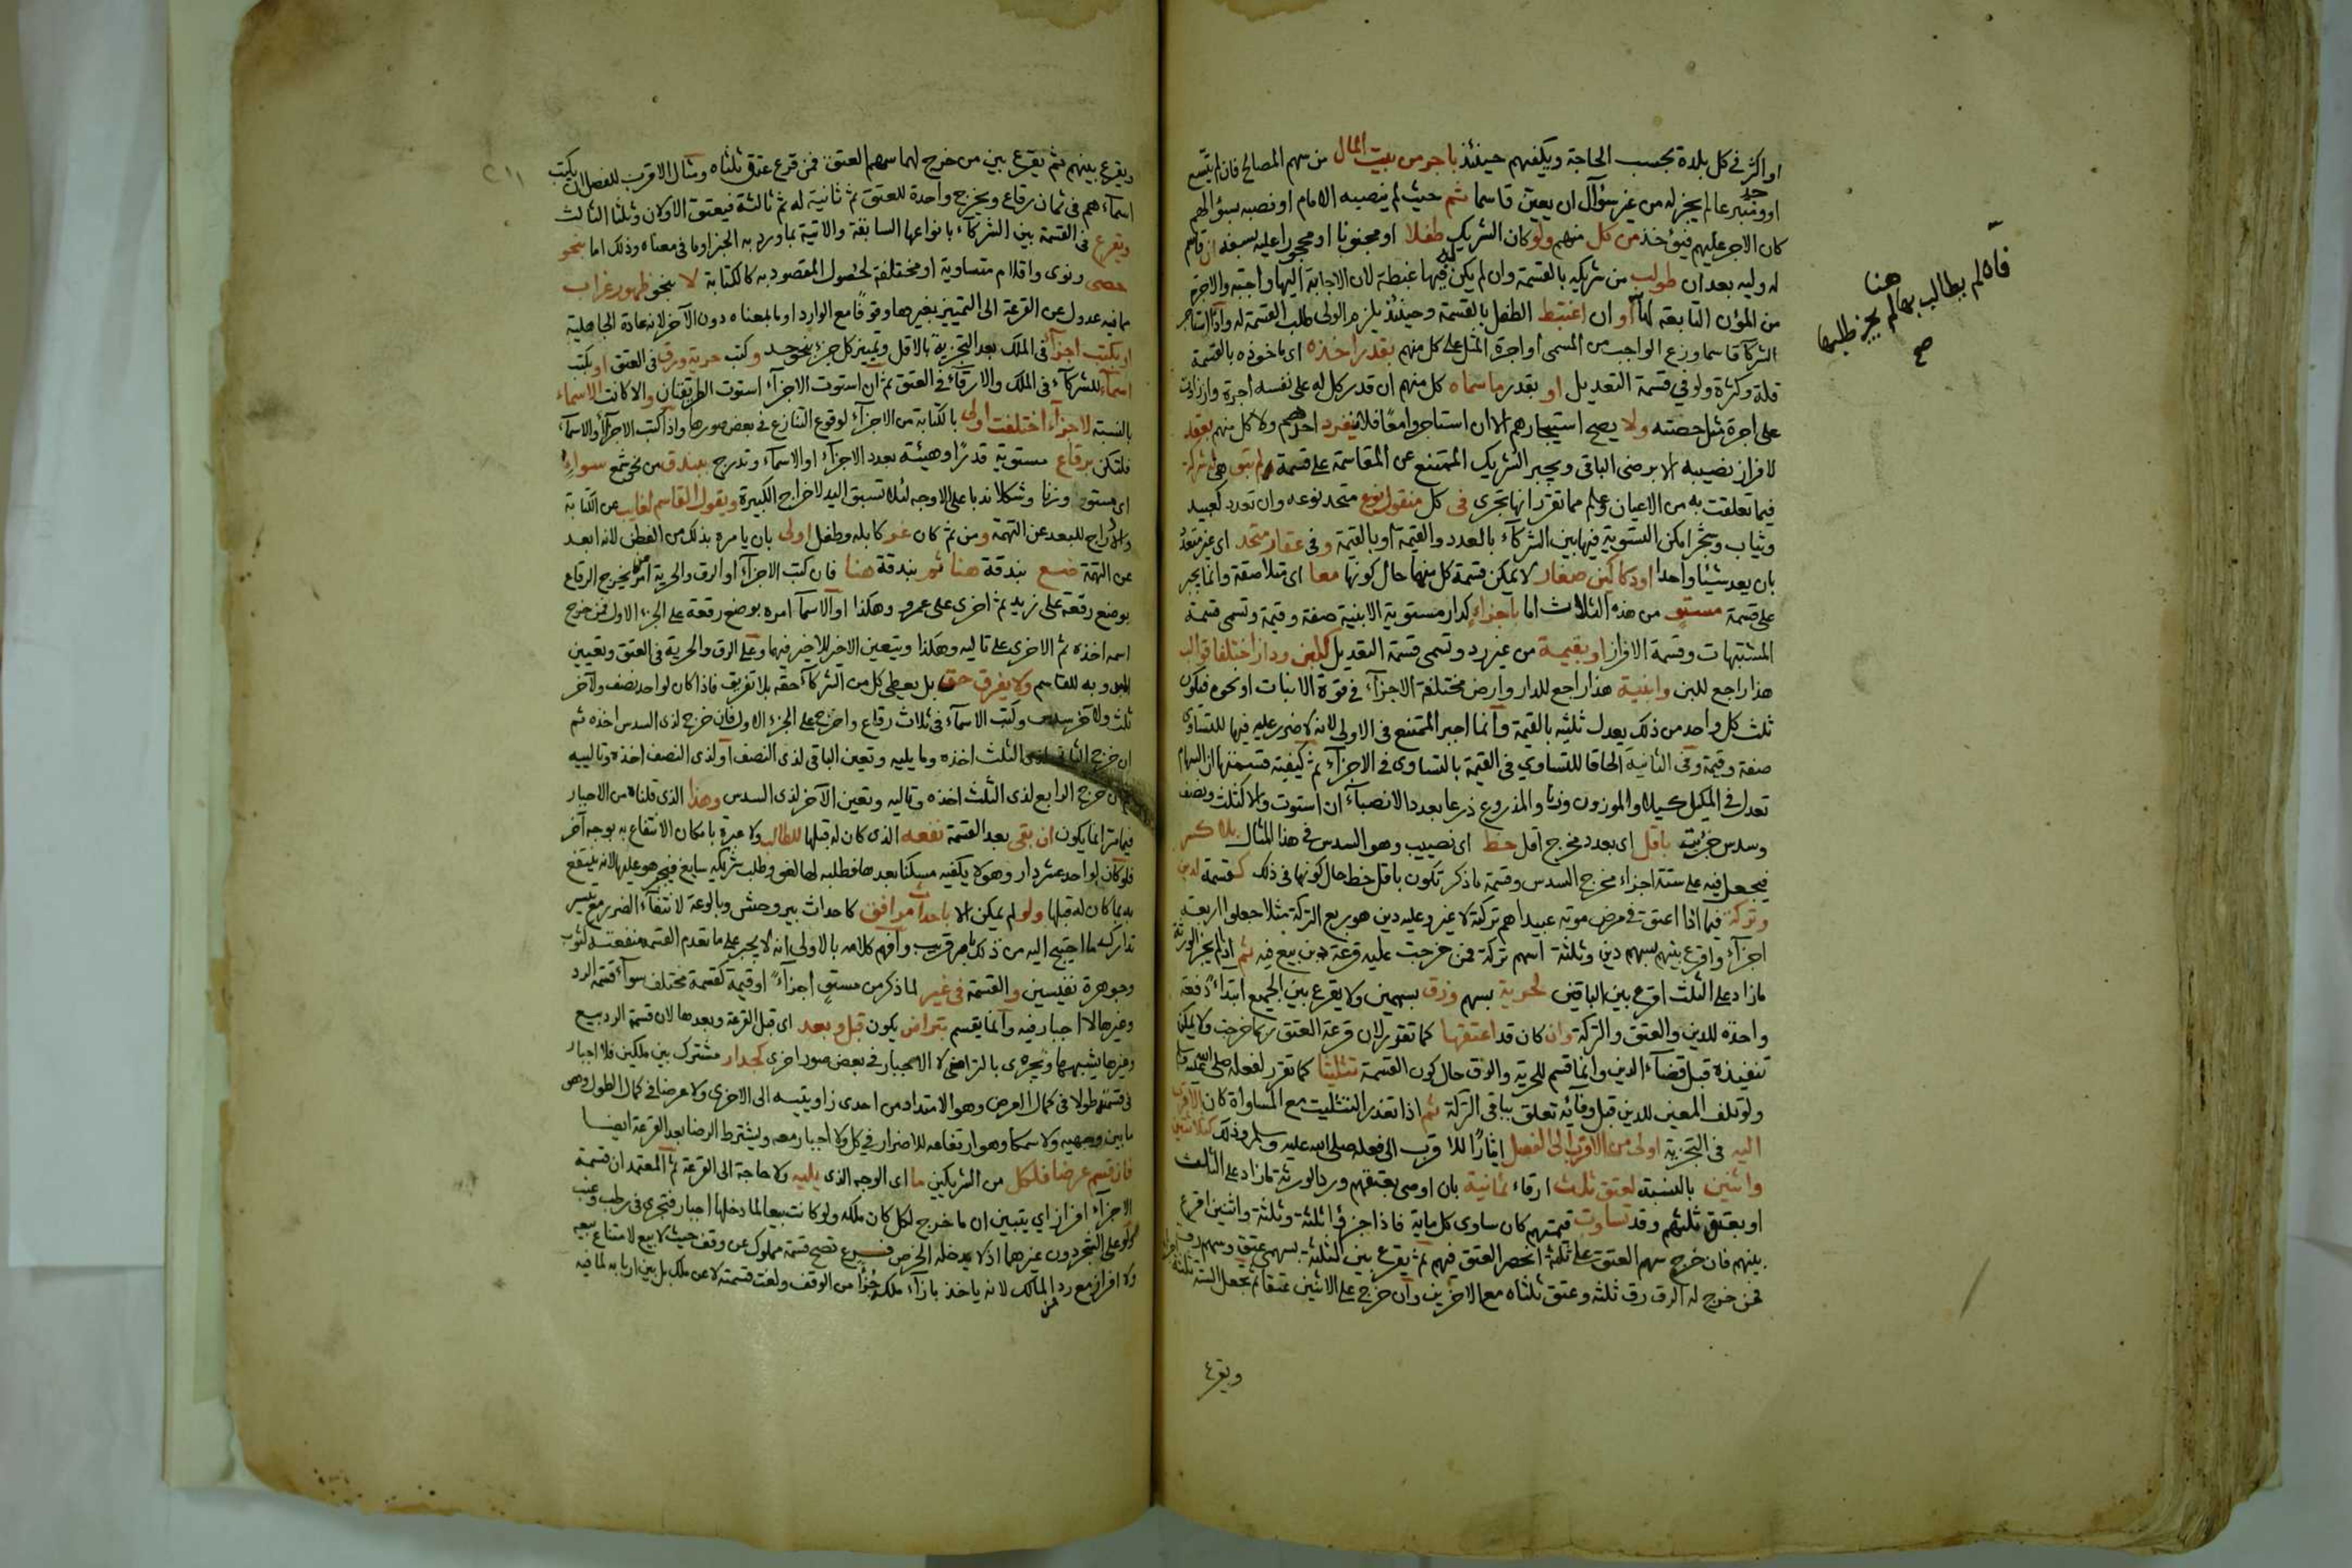 او اكثر في كل بلدة بحسب الحاجة ويكفيهم حينئذ باجر من بيت المال من سهم المصالح فان لم يتسع
او وجد متبرع لم يجز له من غير سؤال ان يعين قاسما ثم حيث لم ينصبه الامام او نصبه بسؤالهم
كان الاجر عليهم فيؤخذ من كل منهم ولو كان الشريك طفلا او مجنونا او محجورا عليه بسفه ان قاسم
له وليه بعد ان طولب من شريكه بالقسمة وان لم يكن له فيها غبطة لان الاجابة اليها واجبة والاجرة
من المؤن التابعة لها او ان اغتبط الطفل بالقسمة وحينئذ يلزم الولي طلب القسمة له واذا استاجر
الشركآ قاسما وزع الواجب من المسمى او اجرة المثل على كل منهم بقدر اخذه اي ماخوذه بالقسمة
قلة وكثرة ولو في قسمة التعديل او بقدر ما سماه كل منهم ان قدر كل له على نفسه اجرة وان زادت
على اجرة مثل حصته ولا يصح استيجارهم الا ان استاجروا معا فلا ينفرد احدهم ولا كل منهم بعقد
لافراز نصيبه الا برضى الباقي ويجبر الشريك الممتنع عن المقاسمة على قسمة لم تبق هي شركة
فيما تعلقت به من الاعيان وعلم مما تقرر انها تجرى في كل منقول نوع متحد نوعه وان تعدد كعبيد
وثياب وشجر امكن التسوية فيها بين الشركآء بالعدد والقيمة او بالقيمة وفي عقار متحد اي غير متعدد
بان يعد شيئا واحدا او دكاكين صغار لا يمكن قسمة كل منها حال كونها معا اي متلاصقة وانما يجبر
على قسمة مستو من هذه الثلاث اما باجزاء كدار مستوية الابنية صفة وقيمة وتسمى قسمة
المشتبهات وقسمة الافراز او بقيمة من غير رد وتسمى قسمة التعديل كلبن ودار اختلفا قوالب
هذا راجع للبن وابنية هذا راجع للدار وارض مختلفة الاجزآء في قوة الانبات او نحوه فيكون
ثلث كل واحد من ذلك يعدل ثلثيه بالقيمة وانما اجبر الممتنع في الاولى لانه لا ضرر عليه فيها للتساوى
صفة وقيمة وفي الثانية الحاقا للتساوي في القيمة بالتساوى في الاجزآء ثم كيفية قسمتها ان السهام
تعدل في المكيل كيلا والموزون وزنا والمذروع ذرعا بعدد الانصبآء ان استوت والا كثلث ونصف
وسدس جزئت باقل اي بعدد مخرج اقل حظ اي نصيب وهو السدس في هذا المثال بلا كسر
فيجعل فيه على ستة اجزاء مخرج السدس وقسمة ما ذكر تكون باقل حظ حال كونها في ذلك كقسمة لدين
وتركة فيما اذا اعتق في مرض موته عبيدا هم تركة لا غير وعليه دين هو ربع التركة مثلا جعلوا اربعة
اجزآء واقرع بينهم بسهم دين وثلثة اسهم تركة فمن خرجت عليه قرعة دين بيع فيه ثم اذا لم يجز الورثة
ما زاد على الثلث اقرع بين الباقين لحرية بسهم ورق بسهمين ولا يقرع بين الجميع ابتداء دفعة
واحدة للدين والعتق والتركة وان كان قد اعتقها كما تقرر لان قرعة العتق ربما خرجت ولا يمكن
تنفيذه قبل قضآء الدين وانما قسم للحرية والرق حال كون القسمة تثليثا كما تقرر لفعله صلى الله عليه وسلم
ولو تلف المعين للدين قبل وفائه تعلق بباقي التركة ثم اذا تعذر التثليث مع المساواة كان الاقرب
اليه في التجزية اولى من الاقرب الى الفصل ايثارا للاقرب الى فعله صلى الله عليه وسلم وذلك كثلاثتين
واثنين بالنسبة لعتق ثلث ارقاء ثمانية بان اوصى بعتقهم ورد الورثة ما زاد على الثلث
او بعتق ثلثهم وقد تساوت قيمتهم كان ساوى كل ماية فاذا جزؤا ثلثة وثلثة واثنين اقرع
بينهم فان خرج سهم العتق على ثلثة انحصر العتق فيهم ثم يقرع بين الثلثة بسهمي عتق وسهم رق
فمن خرج له الرق رق ثلثه وعتق ثلثاه مع الاخرين وان خرج على الاثنين عتقا ثم تجعل الستة ثلثة
ويقرع
فان لم يطالب بها لم يجز طلبها
هنا
صح
ويقرع بينهم ثم يقرع بين من خرج لهما سهم العتق فمن قرع عتق ثلثاه ومثال الاقرب للفصل ان يكتب
اسمآءهم في ثمان رقاع ويخرج واحدة للعتق ثم ثانية له ثم ثالثة فيعتق الاولان وثلثا الثالث
ويقرع في القسمة بين الشركآء بانواعها السابقة والاتية بما ورد به الخبر او ما في معناه وذلك اما بنحو
حصى ونوى واقلام متساوية او مختلفة لحصول المقصود به كالكتابة لا بنحو ظهور غراب
مما فيه عدول عن القرعة الى التمييز بغيرها وقوفا مع الوارد او ما بمعناه دون الآخر لانه عادة الجاهلية
او يكتب اجزآ في الملك بعد التجزية بالاقل وتمييز كل جزء بنحو حد وكتب حرية ورق في العتق او يكتب
اسمآء للشركآء في الملك والارقآء في العتق ثم ان استوت الاجزآء استوت الطريقتان والا كانت الاسماء
بالنسبة لاجزآء اختلفت اولى بالكتابة من الاجزآء لوقوع التنازع في بعض صورها واذا كتب الاجزآء والاسمآء
فلتكن برقاع مستوية قدرا وهيئة بعدد الاجزآء او الاسمآء وتدرج ببندق من نحو شمع سواء
اي مستو وزنا وشكلا ندبا على الاوجه لئلا تسبق اليد لاخراج الكبيرة ويقول القاسم لغايب عن الكتابة
والادراج للبعد عن التهمة ومن ثم كان غر كابله وطفل اولى بان يامره بذلك من الفطن لانه ابعد
عن التهمة ضع بندقة هنا ثم بندقة هنا فان كتب الاجزآء او الرق والحرية امر من يخرج الرقاع
بوضع رقعة على زيد ثم اخرى على عمرو وهكذا او الاسمآ امره بوضع رقعة على الجزء الاول فمن خرج
اسمه اخذه ثم الاخرى على تاليه وهكذا ويتعين الاخير للاخير فيهما وعلى الرق والحرية في العتق وتعيين
المبدو به للقاسم ولا يفرق حق بل يعطى كل من الشركآء حقه بلا تفريق فاذا كان لواحد نصف ولآخر
ثلث ولآخر سدس وكتب الاسمآء في ثلاث رقاع واخرج على الجزء الاول فان خرج لذى السدس اخذه ثم
ان خرج الثاني لذى الثلث اخذه وما يليه وتعين الباقي لذى النصف او لذى النصف اخذه وتالييه
فان خرج الرابع لذى الثلث اخذه وتاليه وتعين الآخر لذى السدس وهذا الذي قلناه من الاجبار
فيما مر انما يكون ان بقى بعد القسمة نفعه الذى كان له قبلها للطالب ولا عبرة بامكان الانتفاع به بوجه آخر
فلو كان لواحد عشر دار وهو لا يكفيه مسكنا بعدها فطلبه لها لغو وطلب شريكه سايغ فيجبر هو عليها لانه ينتفع
به بما كان له قبلها ولو لم يمكن الا باحداث مرافق كاحداث بير وحش وبالوعة لانتفآء الضرر مع تيسر
تدارك ما احتيج اليه من ذلك بامر قريب وافهم كلامه بالاولى انه لا يجبر على ما تعدم القسمة منفعته كثوب
وجوهرة نفيسين والقسمة في غير لما ذكر من مستو اجزآء او قيمة كقسمة مختلف سوآء قسمة الرد
وغيرها لا اجبار فيه وانما يقسم بتراض يكون قبل وبعد اي قبل القرعة وبعدها لان قسمة الرد بيع
وغيرها يشبهها وتجرى بالتراضي لا الاجبار في بعض صور اخرى كجدار مشترك بين ملكين فلا اجبار
في قسمته طولا في كمال العرض وهو الامتداد من احدى زاويتيه الى الاخرى ولا عرضا في كمال الطول وهو
ما بين وجهيه ولا سمكا وهو ارتفاعه للاضرار في كل ولا اجبار معه ويشترط الرضا بعد القرعة ايضا
فان قسم عرضا فلكل من الشريكين ما اي الوجه الذى يليه ولا حاجة الى القرعة ثم المعتمد ان قسمة
الاجزآء افراز اي يتبين ان ما خرج لكل كان ملكه ولو كانت بيعا لما دخلها اجبار فتجرى في رطب وعنب
ولو على الشجر دون غيرهما اذ لا يدخله الخرص فرع تصح قسمة مملوك عن وقف حيث لا بيع لامتناع بيعه
ولا افراز مع رد من المالك لانه ياخذ بازآء ملكه جزأ من الوقف ولغت قسمته لا عن ملك بل بين اربابه لما فيه
٢١١